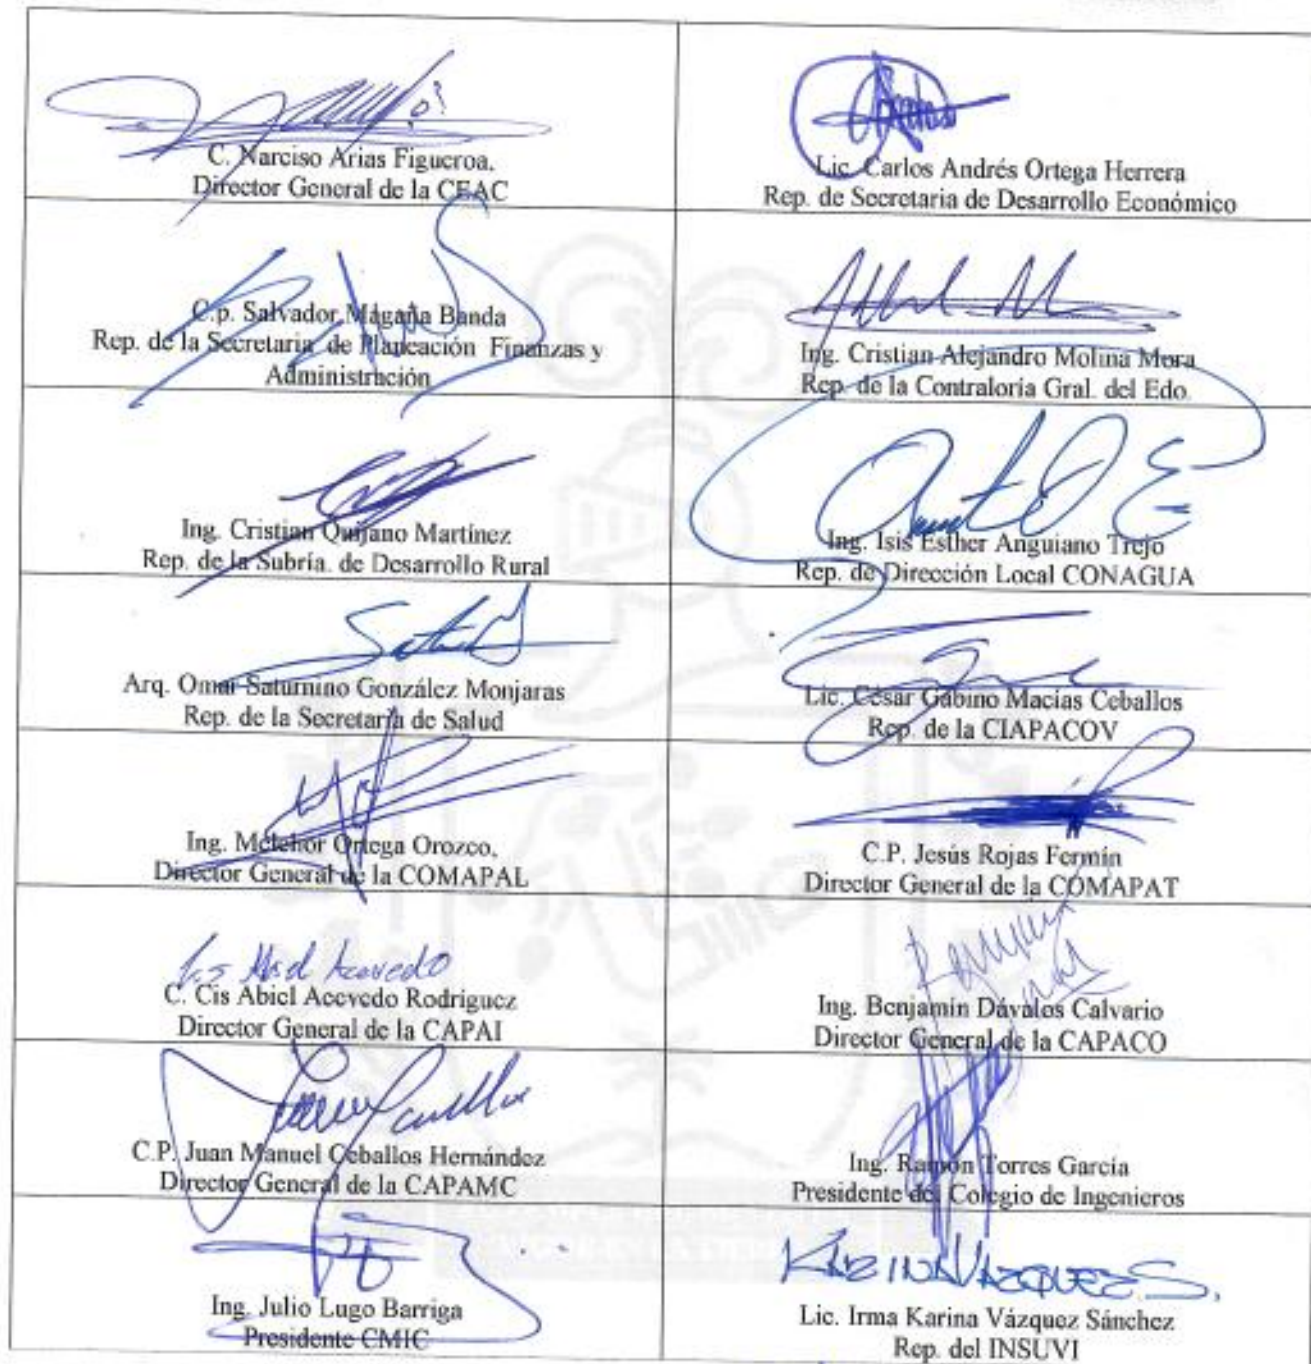 C. Narciso Arias Figueroa,
Director General de la CEAC
Lic. Carlos Andrés Ortega Herrera
Rep. de Secretaria de Desarrollo Económico
C.p. Salvador Magaña Banda
Rep. de la Secretaria de Planeación Finanzas y
Administración
Ing. Cristian Alejandro Molina Mora
Rep. de la Contraloría Gral. del Edo.
Ing. Cristian Quijano Martínez
Rep. de la Subría. de Desarrollo Rural
Ing. Isis Esther Anguiano Trejo
Rep. de Dirección Local CONAGUA
Arq. Omar Saturnino González Monjaras
Rep. de la Secretaría de Salud
Lic. César Gabino Macías Ceballos
Rep. de la CIAPACOV
Ing. Melchor Ortega Orozco,
Director General de la COMAPAL
C.P. Jesús Rojas Fermín
Director General de la COMAPAT
Cis Abiel Acevedo
C. Cis Abiel Acevedo Rodríguez
Director General de la CAPAI
Ing. Benjamín Dávalos Calvario
Director General de la CAPACO
C.P. Juan Manuel Ceballos Hernández
Director General de la CAPAMC
Ing. Ramón Torres García
Presidente del Colegio de Ingenieros
Ing. Julio Lugo Barriga
Presidente CMIC
KARINA VAZQUEZ S.
Lic. Irma Karina Vázquez Sánchez
Rep. del INSUVI